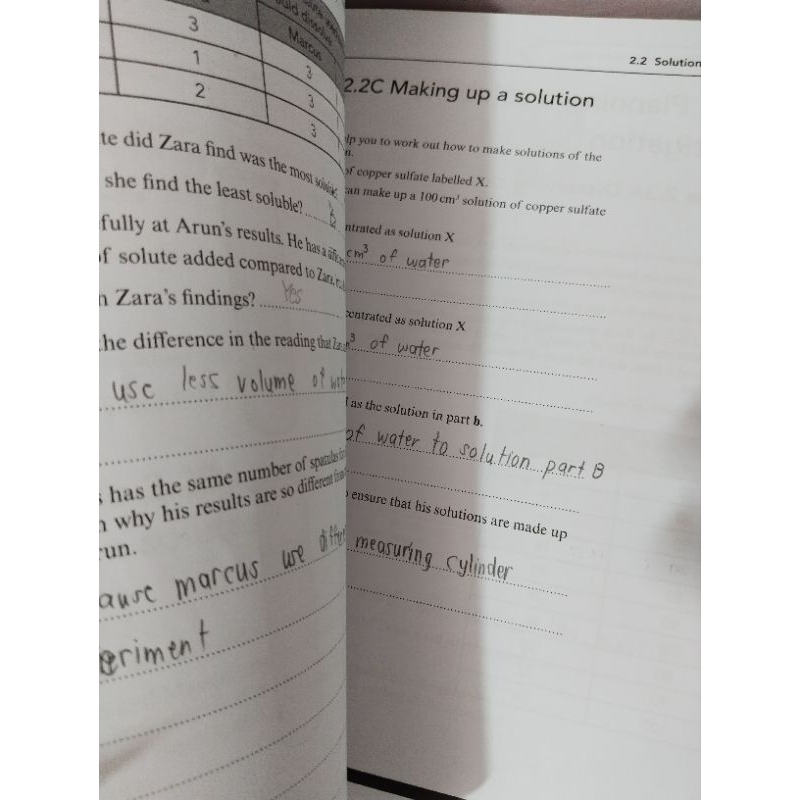 3
1
2
could dissolve
Marcus
3
3
3
te did Zara find was the most
she find the least soluble?
fully at Arun's results. He has a
f solute added compared to Zara,
n Zara's findings? Yes
he difference in the reading that
use less volume of
has the same number of spatulas
why his results are so different
run.
ause marcus use
eriment
2.2 Solution
2.2C Making up a solution
lp you to work out how to make solutions of the
n.
of copper sulfate labelled X.
an make up a 100 cm³ solution of copper sulfate
ntrated as solution X
cm³ of water
centrated as solution X
of water
as the solution in part b.
of water to solution part B
ensure that his solutions are made up
measuring cylinder